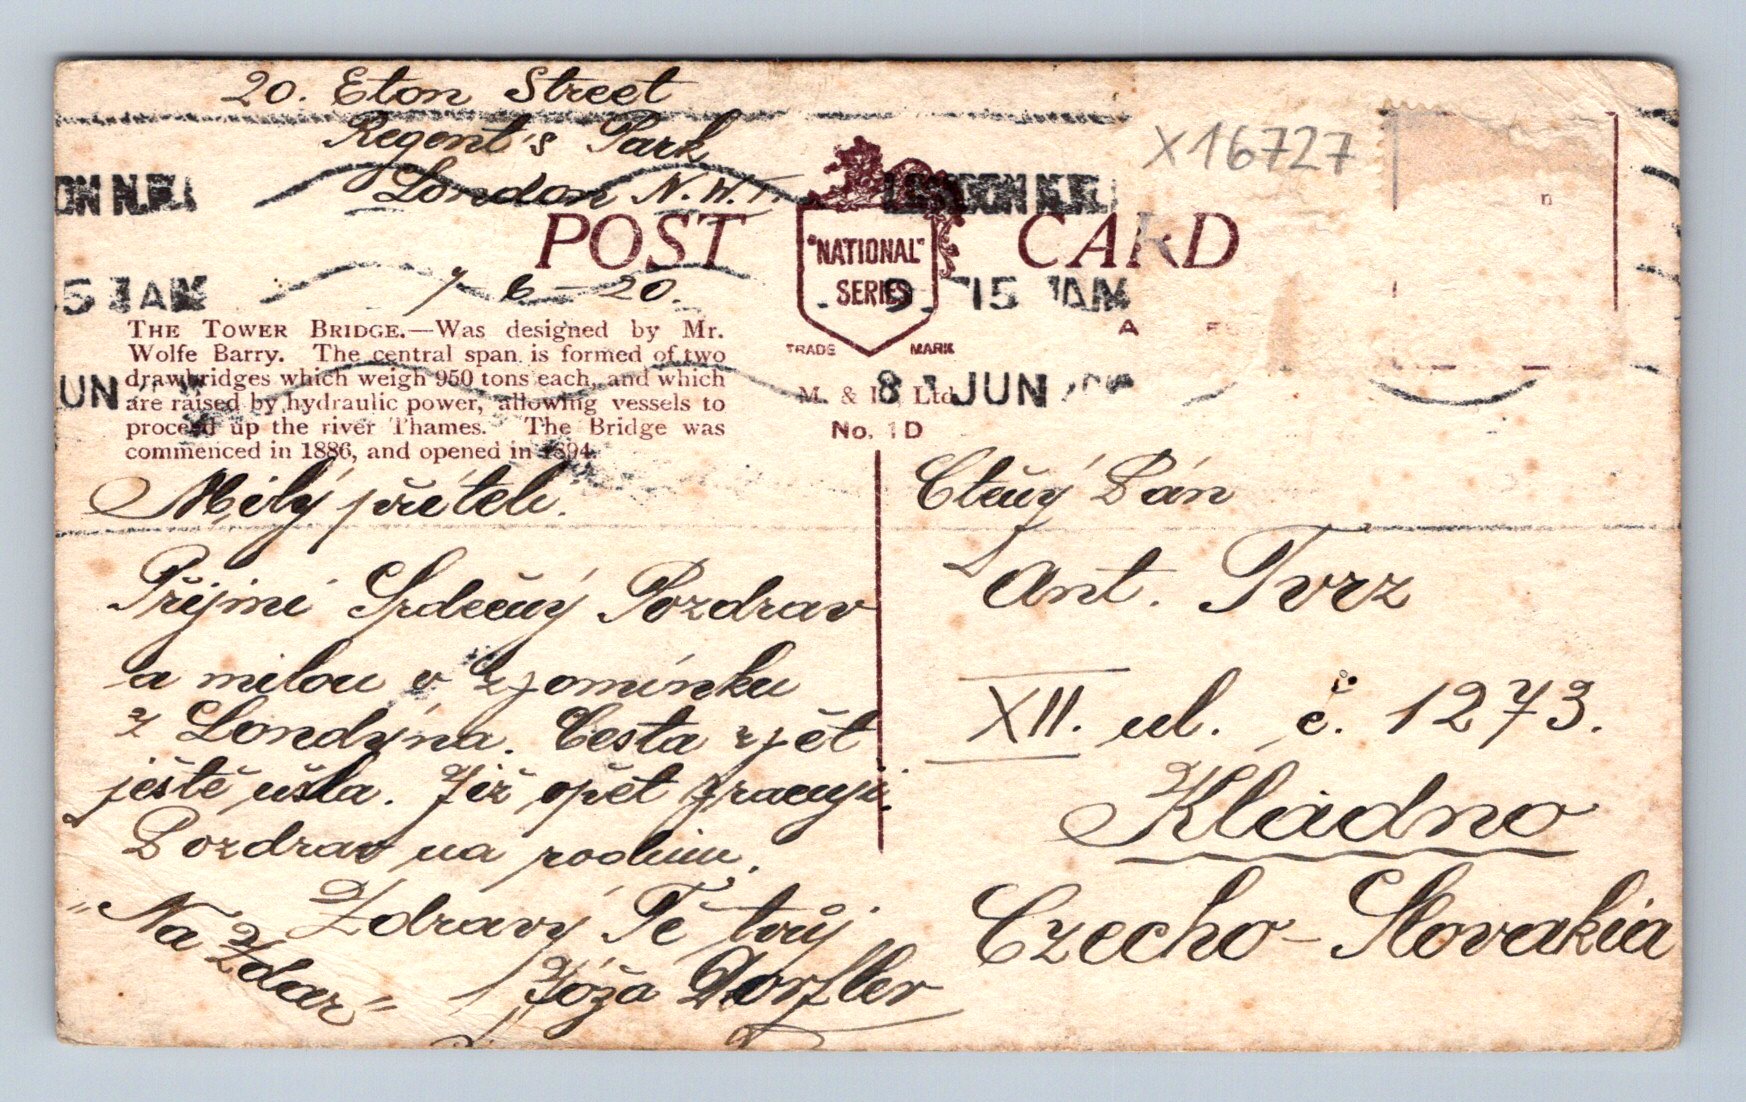 20. Eton Street
Regent's Park
London N.W.1.
X16727
LONDON N.W.1
POST CARD
"NATIONAL"
SERIES
TRADE MARK
7-6-20.
9 15 AM
5 AM
8 JUN
JUN
THE TOWER BRIDGE.—Was designed by Mr.
Wolfe Barry. The central span is formed of two
drawbridges which weigh 950 tons each, and which
are raised by hydraulic power, allowing vessels to
proceed up the river Thames. The Bridge was
commenced in 1886, and opened in 1894.
M. & L. Ltd.
No. 1D
Milý příteli.
Přijmi Srdečný Pozdrav
a milou v zpomínku
z Londýna. Cesta zpět
ještě ušla. Již opět pracuji
Pozdrav na rodinu.
Zdravý Tě tvůj
"Na Zdar"
Jóža Dorfler
Ctěný Pán
Ant. Tvrz
XII. ul. č. 1273.
Kladno
Czecho-Slovakia